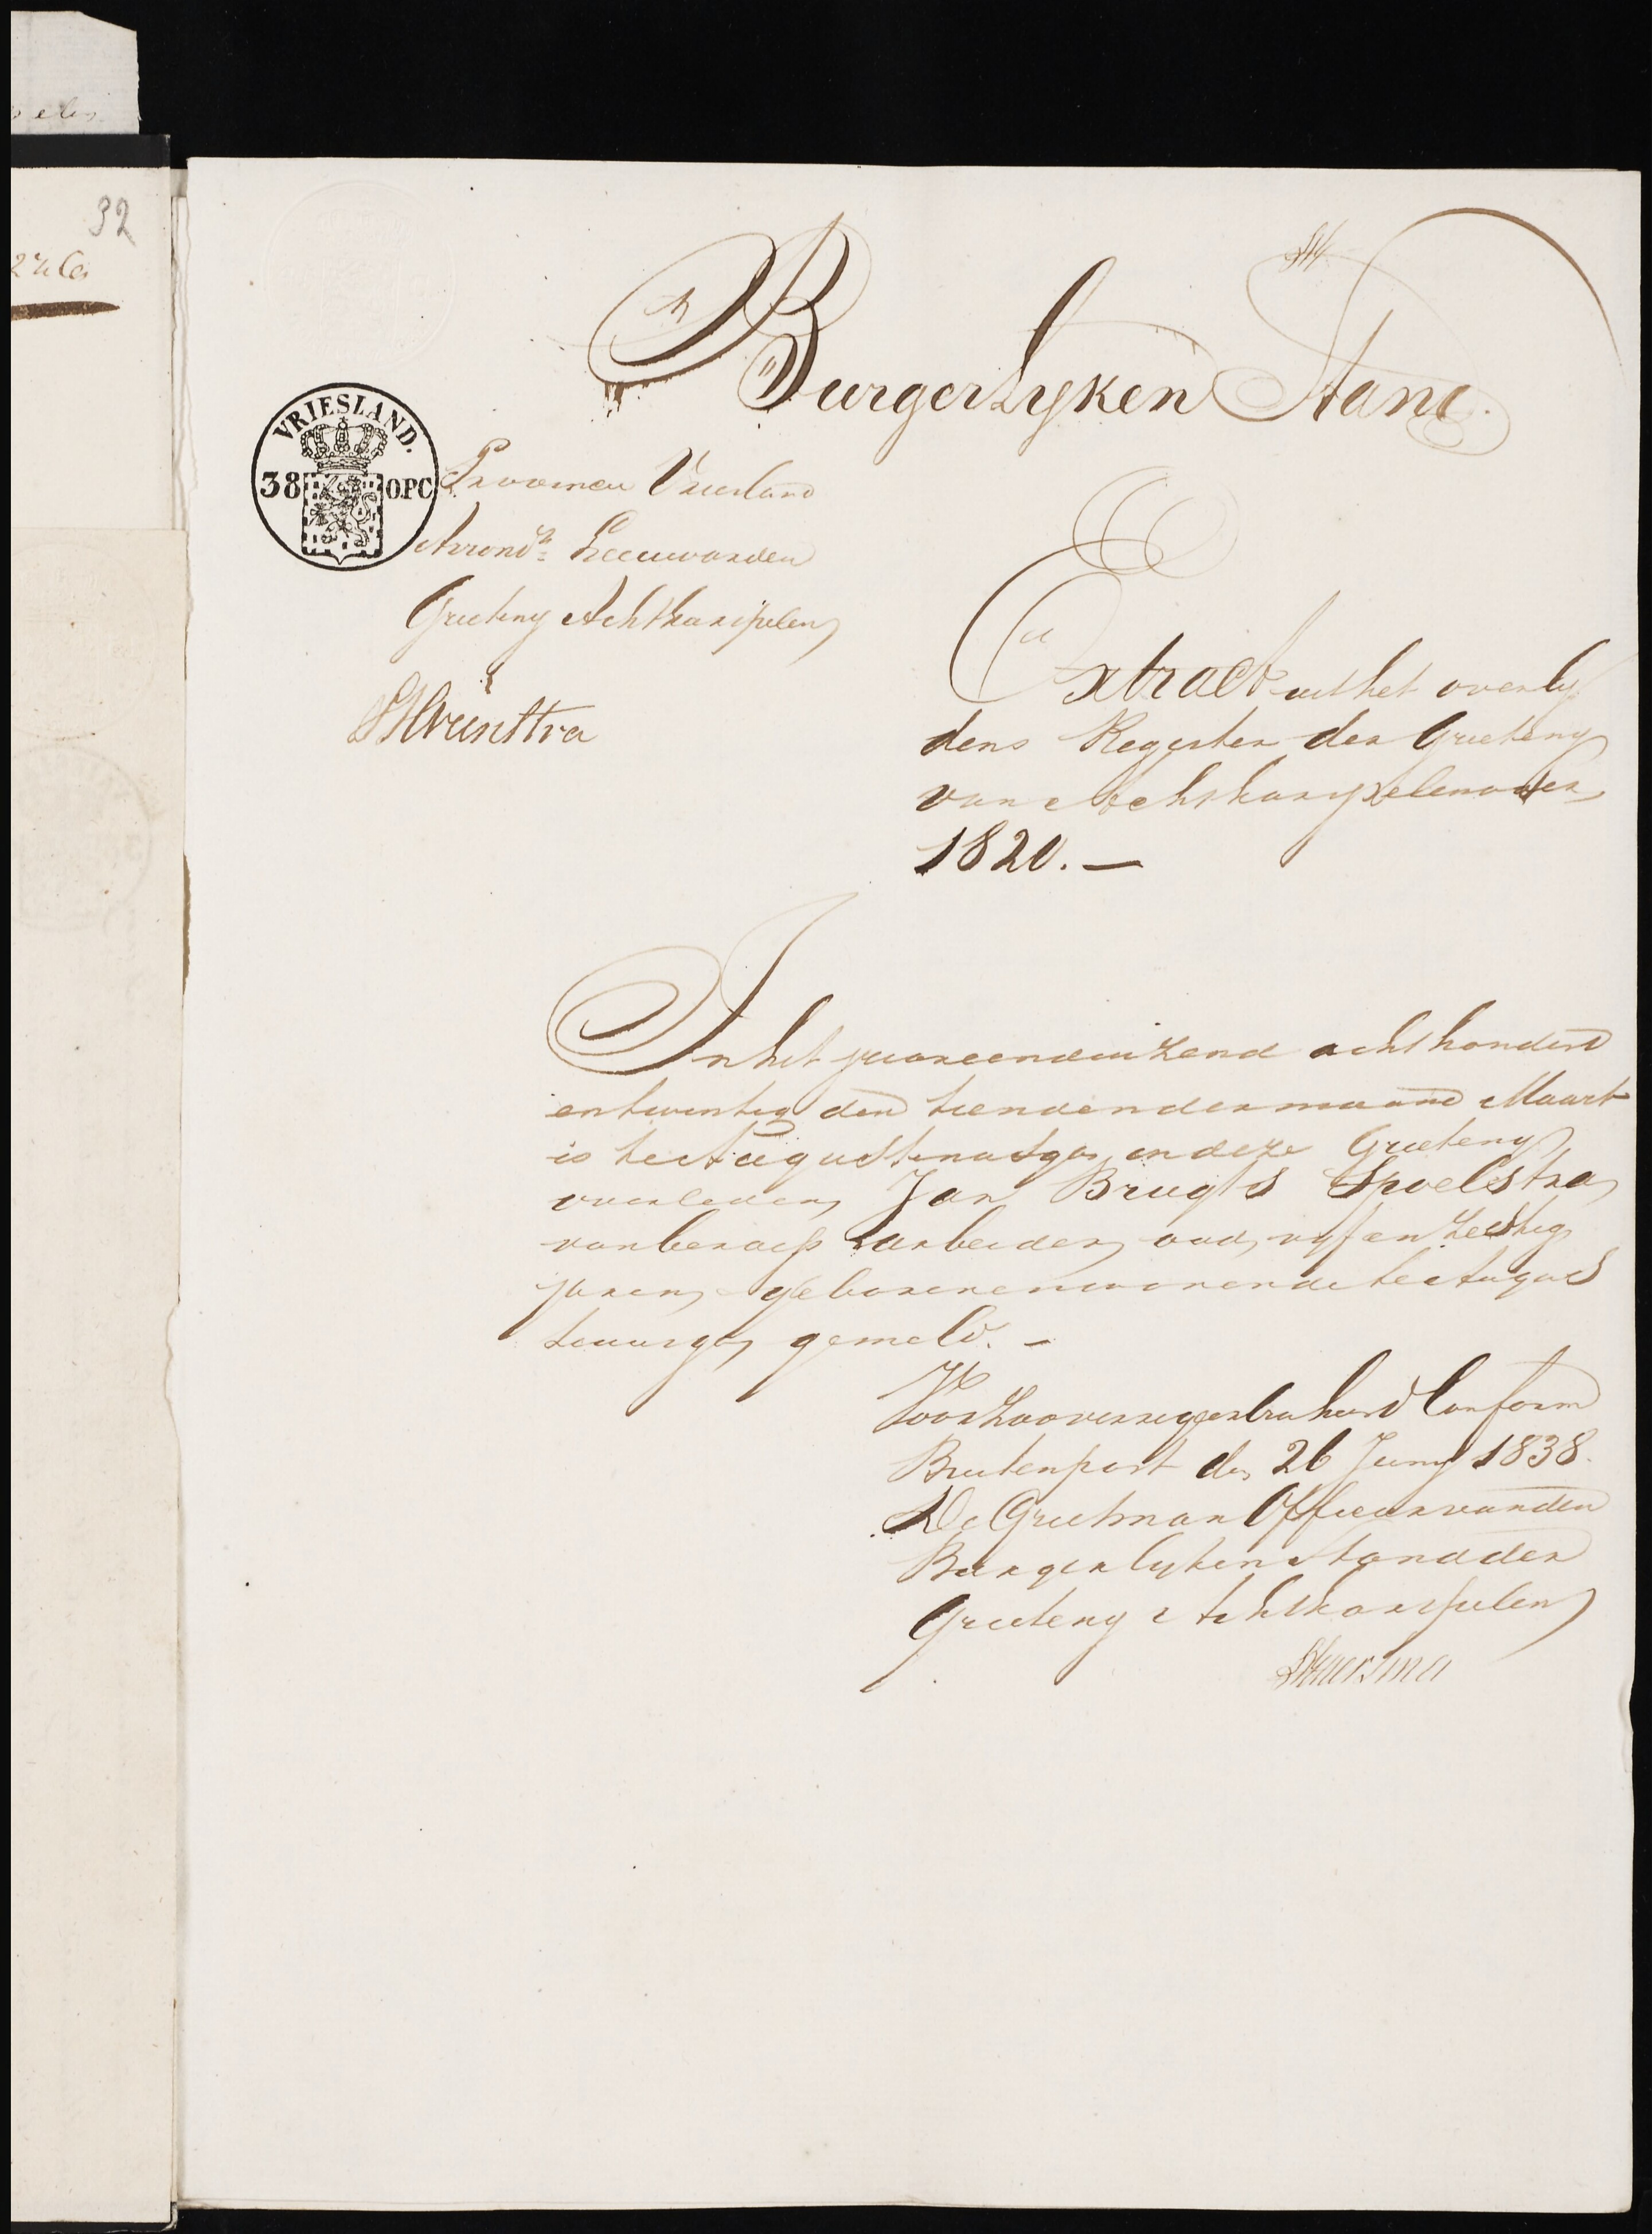 32
Burgerlyken Stand.
VRIESLAND.
38 OPC
Provincie Vriesland
Arrond.t Leeuwarden
Grieteny Achtkarspelen
Extract uit het overly
dens Register der Grieteny
van Achtkarspelen over
1820. —
In het jaar een duizend acht honderd
en twintig den tienden der maand Maart
is te Augustinusga, in deze Grieteny
overleden, Jan Brugts Spoelstra,
van beroep arbeider, oud vyf en zestig
jaren, geboren en wonende te Augus
tinusga, gemeld. —
Voor zoo verre geextraheerd Conform
Buitenpost den 26 Juny 1838.
De Grietman Officier van den
Burgerlyken Stand der
Grieteny Achtkarspelen
Haersma